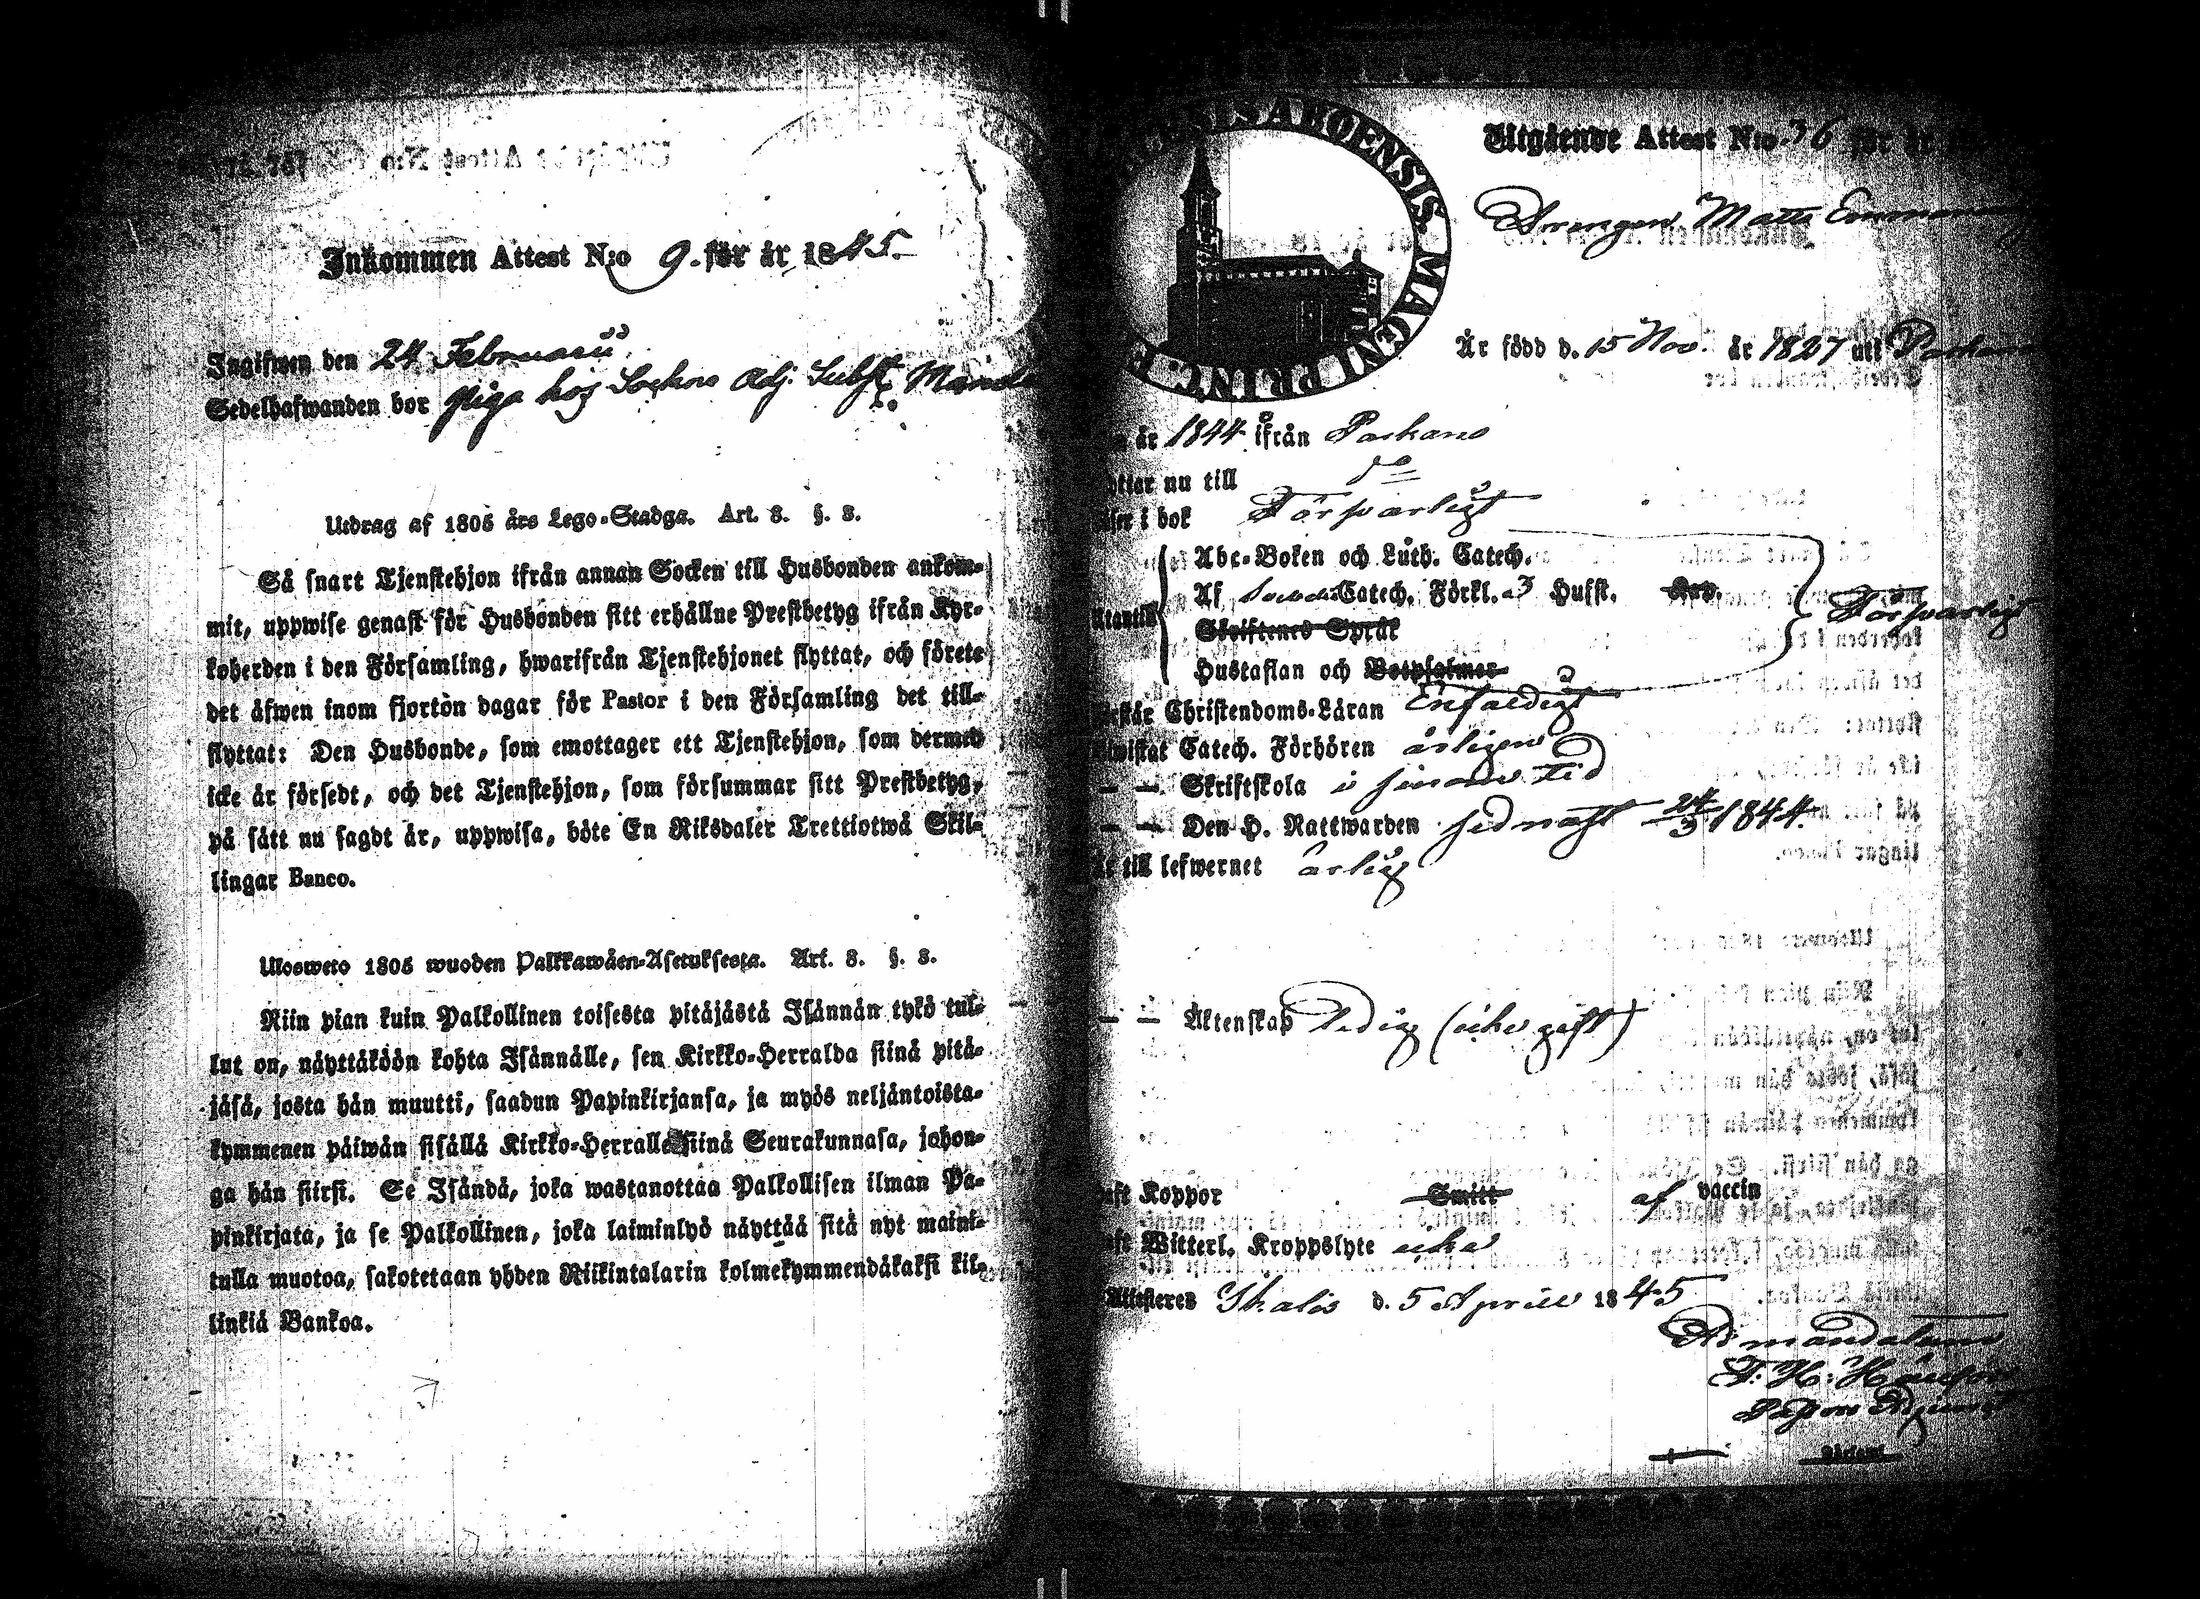 Inkommen Attest N:o 9. för år 1845.
Ingifwen den 24 Februarii
Sedelhafwanden bor piga hos Sockne Adj. Subst.
Utdrag af 1805 års Lego-Stadga. Art. 8. §. 8.
Så snart Tjenstehjon ifrån annan Socken till Husbonden ankom-
mit, uppwise genast för Husbonden sitt erhållne Prestbetyg ifrån Kyr-
koherden i den Församling, hwarifrån Tjenstehjonet flyttat, och förete
det äfwen inom fjorton dagar för Pastor i den Församling det till-
flyttat: Den Husbonde, som emottager ett Tjenstehjon, som dermed
icke är försedt, och det Tjenstehjon, som försummar sitt Prestbetyg,
på sätt nu sagdt är, uppwisa, böte En Riksdaler Trettiotwå Skil-
lingar Banco.
Ulosweto 1805 wuoden Palkkawäen-Asetuksesta. Art. 8. §. 8.
Niin pian kuin Palkollinen toisesta pitäjästä Isännän tykö tul-
lut on, näyttäköön kohta Isännälle, sen Kirkko-Herralda siinä pitä-
jäsä, josta hän muutti, saadun Papinkirjansa, ja myös neljäntoista-
kymmenen päiwän sisällä Kirkko-Herralle siinä Seurakunnasa, johon-
ga hän siirsi. Se Isändä, joka wastanottaa Palkollisen ilman Pa-
pinkirjata, ja se Palkollinen, joka laiminlyö näyttää sitä nyt maini-
tulla muotoa, sakotetaan yhden Riikintalarin kolmekymmendäkaksi kil-
linkiä Bankoa.
ABOENSIS. MAGNI PRINC. F
Utgående Attest N:o 36 för år
Drengen Matts
Är född d. 15 Nov. år 1827 uti
år 1844 ifrån Parkano
nu till do
i bok Försvarligt
Abc-Boken och Luth. Catech.
Af Catech. Förkl. 3 Hufst. Försvarligt
Skriftenes Språk
Hustaflan och Botpsalmer
Christendoms-Läran Enfaldigt
Catech. Förhören årligen
— — Skriftskola i sinom tid
— — Den H. Nattwarden sednast 24/3 1844.
till lefwernet ärlig
— — Äktenskap Ledig (icke gift)
Koppor Smitt af vaccin
Witterl. Kroppslyte icke
Attesteres Ikalis d. 5 April 1845
Ad mandatum